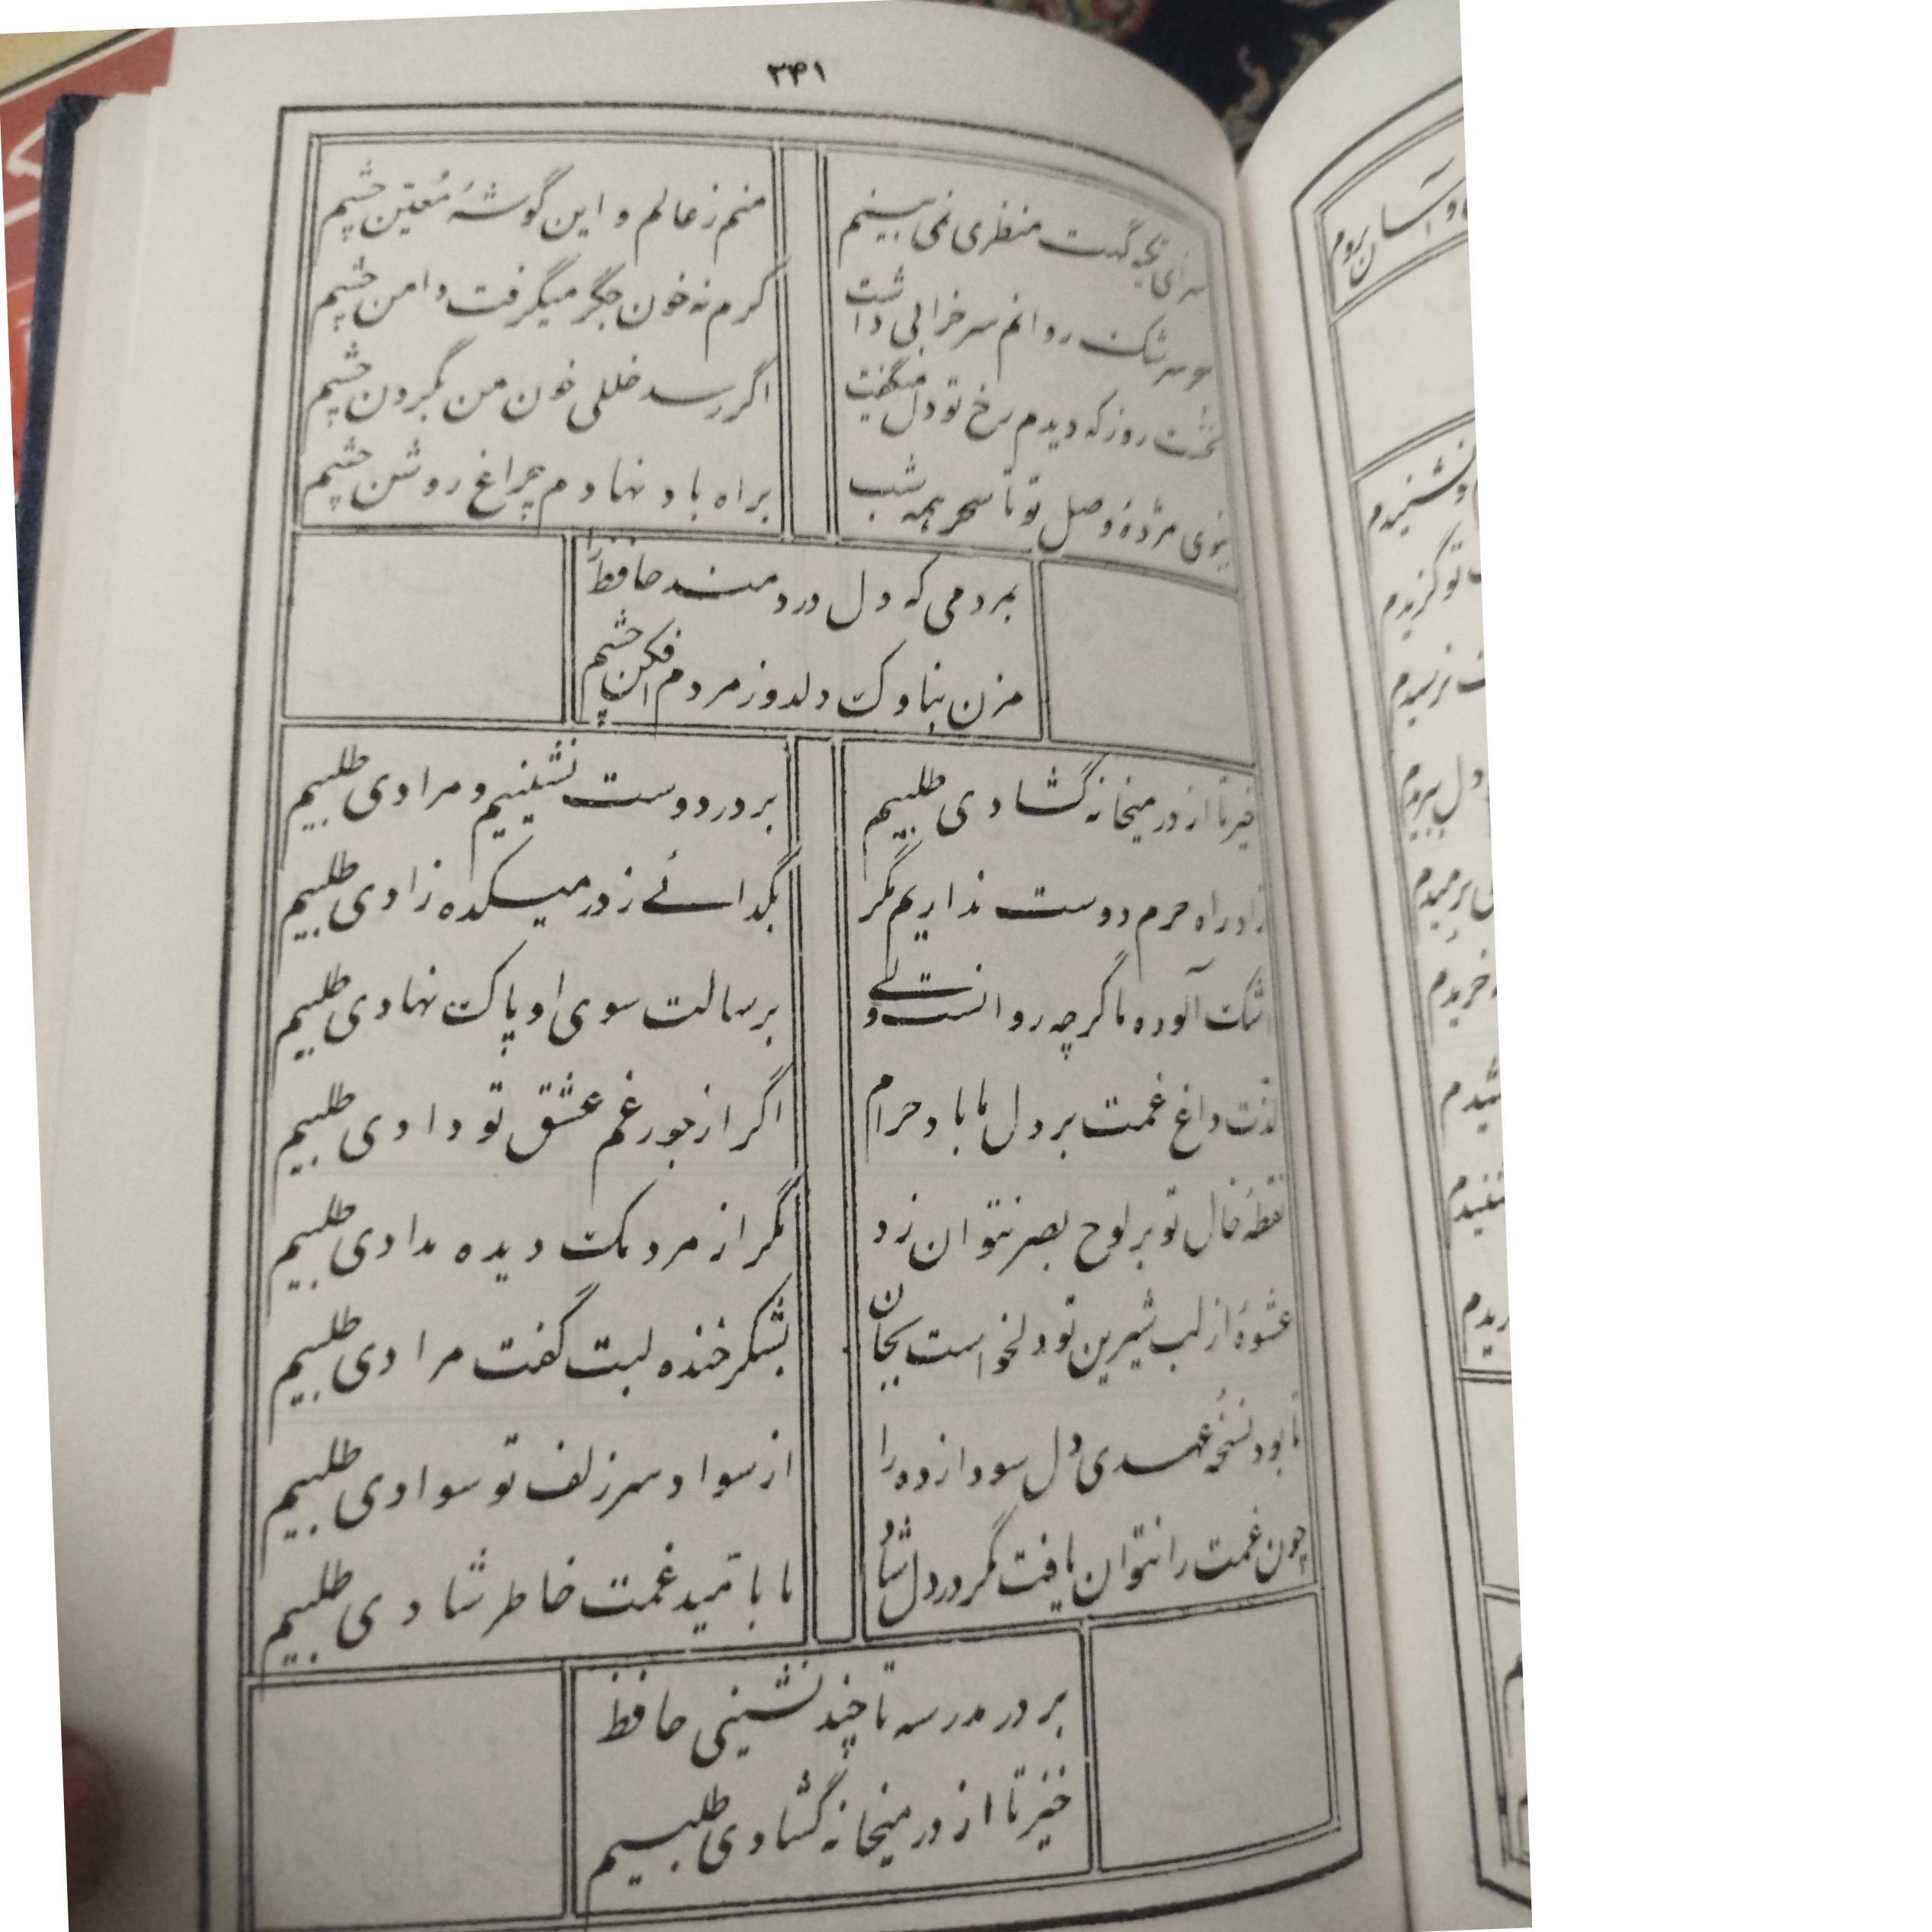 ۳۴۱
سزای تکیه گهت منظری نمی بینم
منم ز عالم و این گوشهٔ مُعیّن چشم
سرشک روانم سر خرابی داشت
گرم نه خون جگر میگرفت دامن چشم
نخست روز که دیدم رخ تو دل میگفت
اگر رسد خللی خون من بگردن چشم
ببوی مژدهٔ وصل تو تا سحر همه شب
براه باد نهادم چراغ روشن چشم
بمردمی که دل دردمند حافظ را
مزن بناوک دلدوز مردم افکن چشم
خیز تا از در میخانه گشادی طلبیم
بر در دوست نشینیم و مرادی طلبیم
زاد راه حرم دوست نداریم مگر
بگدائے ز در میکده زادی طلبیم
اشک آلوده ما گرچه روانست ولے
برسالت سوی او پاک نهادی طلبیم
لذت داغ غمت بر دل ما باد حرام
اگر از جور غم عشق تو دادی طلبیم
نقطهٔ خال تو بر لوح بصر نتوان زد
مگر از مردمک دیده مدادی طلبیم
عشوهٔ از لب شیرین تو دلخواست بجان
بشکر خنده لبت گفت مرادی طلبیم
تا بود نسخهٔ عهدی دل سودازده را
از سواد سر زلف تو سوادی طلبیم
چون غمت را نتوان یافت مگر در دل شاد
ما بامّید غمت خاطر شادی طلبیم
بر در مدرسه تا چند نشینی حافظ
خیز تا از در میخانه گشادی طلبیم
و آسان بروم
نشنیدم
تو گزیدم
نرسیدم
دل ببریدم
برمیدم
خریدم